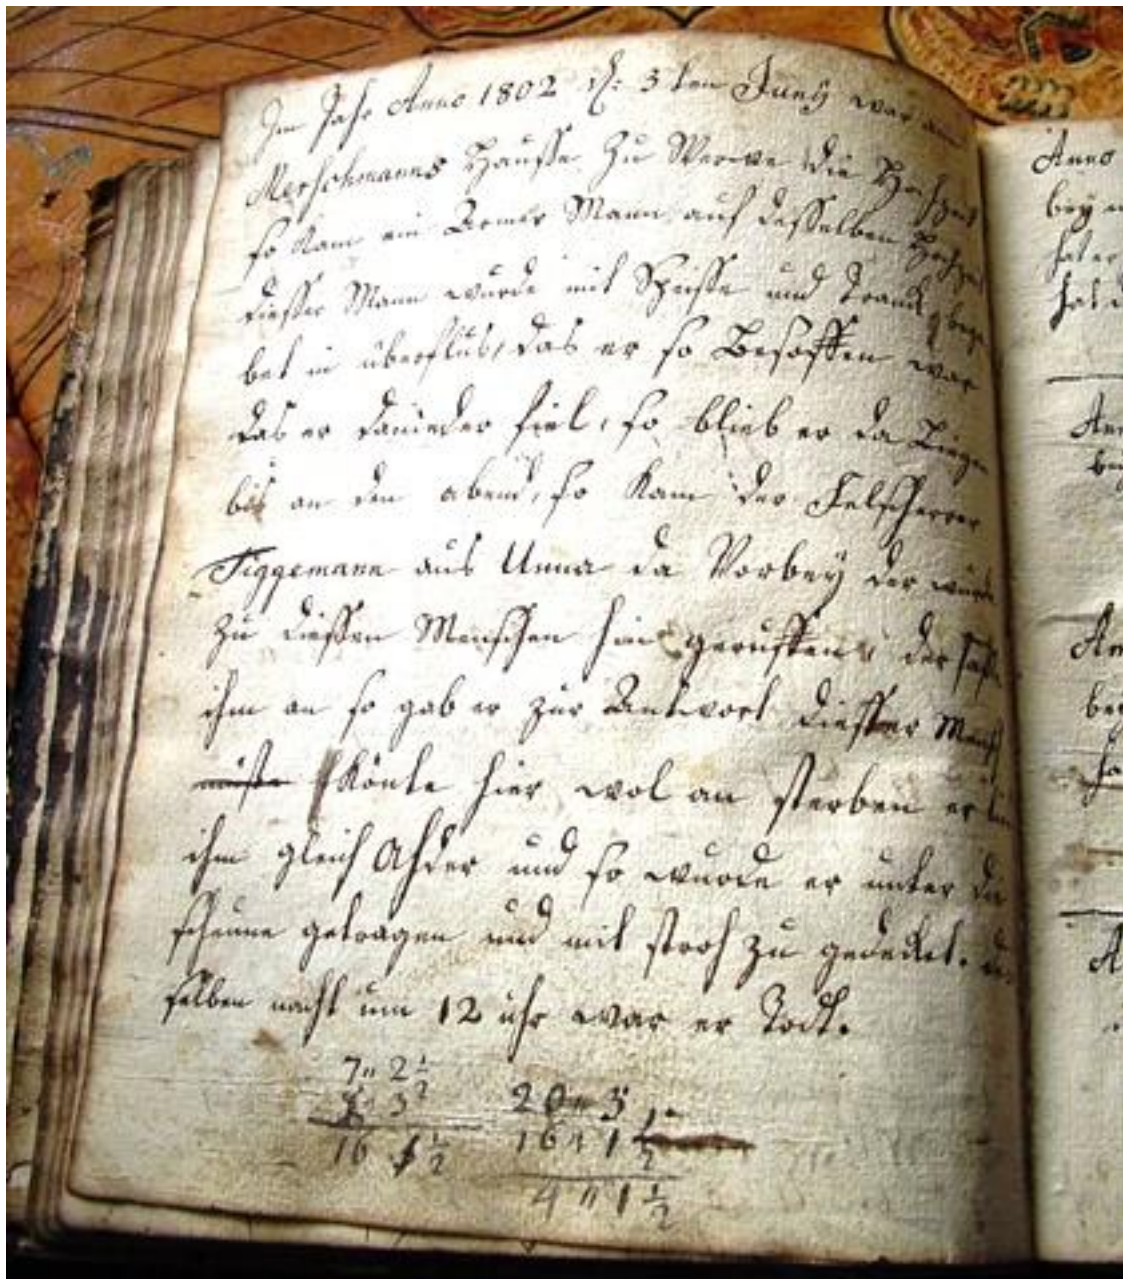 Im Jahr Anno 1802 d: 3ten Juny war an
Merschmanns Hausse zu Werve die Hochzeit
so kam ein Armer Mann auf desselben Hochzeit
diesser Mann wurde mit Speisse und Tranck gege
bet in überflus, das er so Besoffen war
das er darnieder fiel, so blieb er da Liegen
bis an den abend, so kam der Felscherrer
Tiggemann aus Unna da Vorbey der wurde
zu diessen Menschen hin geruffen, der sah
ihm an so gab er zur Antwort diesser Mensch
müste könte hier wol an sterben er
ihm gleich Ahder und so wurde er unter die
scheune getragen und mit stroh zu gedecket.
selben nacht um 12 uhr war er Todt.
7" 2 1/2
8" 3
16 1 1/2
20" 3
16 " 1 1/2
4 " 1 1/2
Anno
bey
hat er
hat